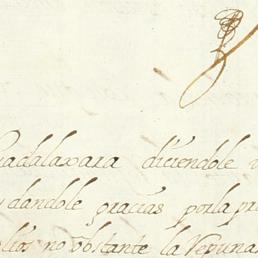 Guadalaxara diciendole
dandole gracias por la
no obstante la